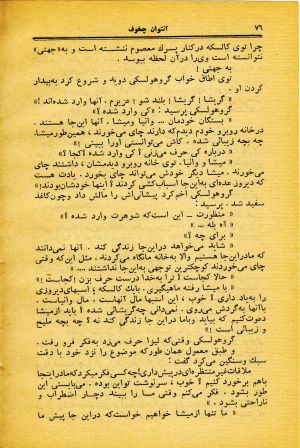 ۷۶
آنتوان چخوف
چرا توی کالسکه درکنار پسرك معصوم ننشسته است و به«جهتی»
نتوانسته است وی‌را در‌آن لحظه ببوسد .
به جهتی !
توی اطاق خواب گروهولسکی دوید و شروع کرد به‌بیدار
کردن او .
« گریشا ! گریشا ! بلند شو ! عزیزم . آنها وارد شده‌اند !»
گروهولسکی پرسید : «کی وارد شده؟ »
« بستگان خودمان ... وانیا ومیشا . آنها این‌جا هستند .
درخانه روبرو خودم دیدم‌که دارند چای می‌خورند ، همین‌طورمیشا.
چه بچه زیبائی شده . کاش می‌توانستی اورا ببینی !»
« درباره کی حرف می‌زنی ؟ کی وارد شده؟ کجا ؟ »
« میشا و وانیا. توی خانه روبرو دیدمشان ، داشتند چای
می‌خوردند . میشا دیگر خودش می‌تواند چای بخورد . یادت هست
که دیروز عده‌ای به‌این‌جا اسباب‌کشی کردند ؟ اینها خودشان‌بودند!»
گروهولسکی اخم‌کرد پیشانی‌اش را مالش داد وچون‌کاغذ
سفید شد . پرسید :
« منظورت – این است‌که شوهرت وارد شده؟ »
« آه بله ... »
« برای چه ؟ »
« شاید می‌خواهد دراین‌جا زندگی کند . آنها نمی‌دانند
که مادراین‌جا هستیم والا به‌خانه مانگاه می‌کردند . مثل این‌که وقتی
چای می‌خوردند کوچکترین توجهی به‌این‌جا نداشتند ... »
« حالا کجاست ؟ ترا به‌خدا درست حرف بزن !کجاست !»
« با میشا رفته ماهیگیری. باياك کالسکه ؛ اسبهای‌دیروزی
را به‌یاد داری ؟ خوب ، این اسبها مال آنهاست . مال وانیاست .
باآنها به‌گردش می‌روی. نمی‌دانی چه‌گریشائی شده؟ باید ازمیشا
دعوت‌کنیم که بیاید وباما دراین جا زندگی کند نه ؟ چه بچه ملیح
و زیبائی است !»
گروهولسکی وقتی‌که لیزا حرف می‌زد به‌فکر فرو رفت .
و طبق معمول همان طورکه موضوع را نزد خود با دقت
سبك وسنگین می‌کرد گفت :
ملاقات‌غیر‌منتظره‌ای درپیش‌داری! چه‌کسی فکر‌میکرد‌که مادراینجا
باهم برخورد کنیم ؟ خوب ، سرنوشت تواین بوده . می‌بایستی این
طور بشود . فکر می‌کنم وقتی ما را ببیند دچار اضطراب و
ناراحتی بشود .»
« ما تنها ازمیشا خواهیم خواست‌که دراین جا پیش ما